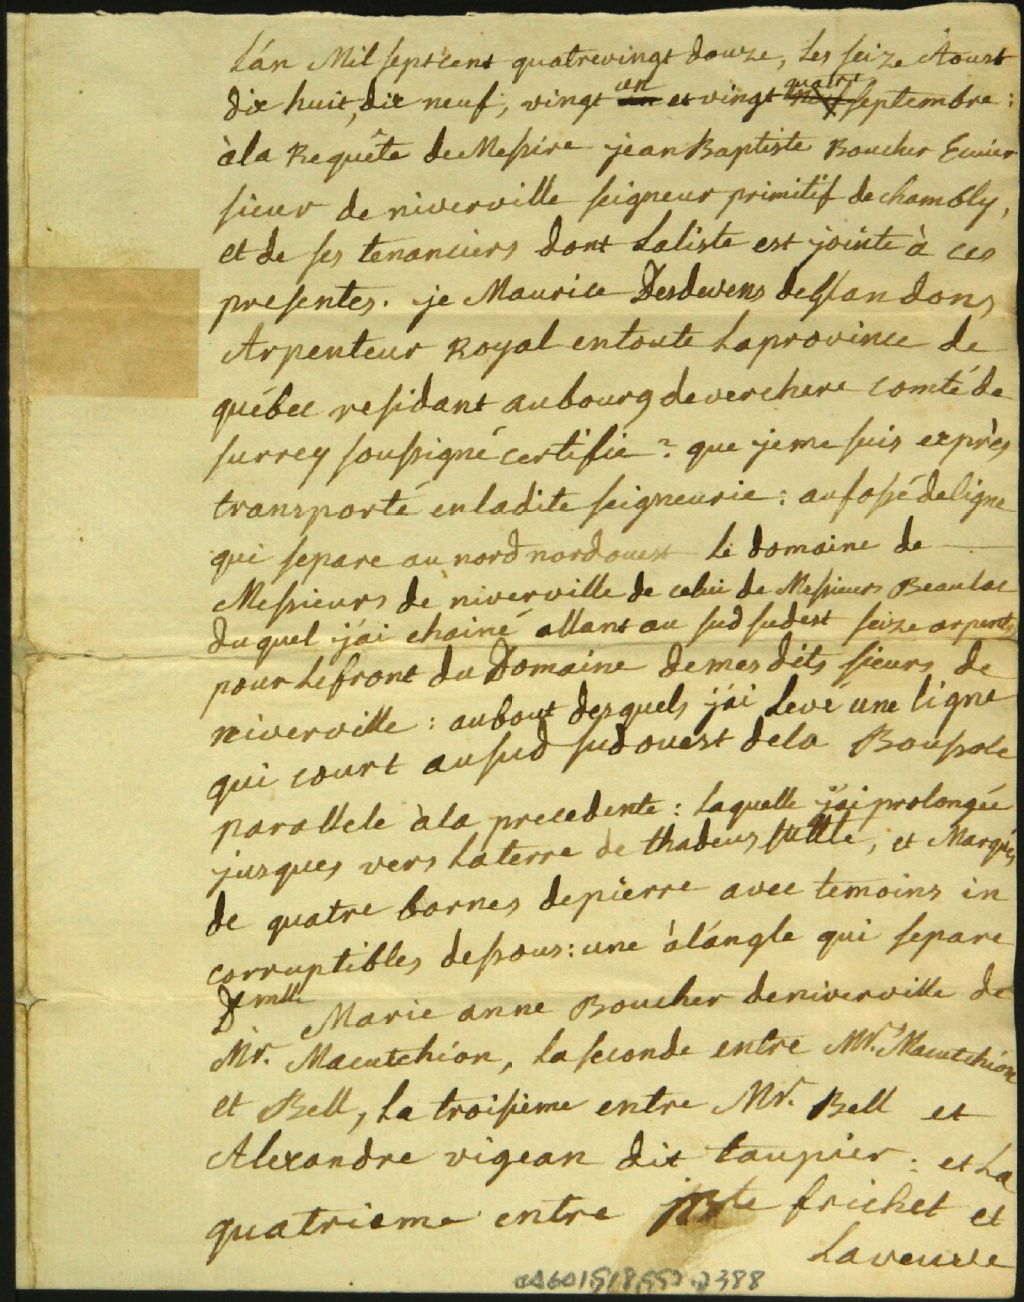 L'an Mil sept cent quatrevingt douze, les seize Aoust
dix huit, dix neuf, vingt un et vingt quatre septembre :
à la Requête de Messire jean Baptiste Boucher Ecuier
sieur de niverville seigneur primitif de chambly,
et de ses tenanciers dont la liste est jointe à ces
presentes. je Maurice Desdevens de Glandons
Arpenteur Royal en toute la province de
québec residant au bourg de verchere comté de
surrey soussigné certifie ? que je me suis exprès
transporté en ladite seigneurie : au fossé de ligne
qui separe au nord nord ouest le domaine de
Messieurs de niverville de celui de Messieurs Beaulac
du quel j'ai chainé allant au sud sudest seize arpents
pour le front du Domaine de mes dits sieurs de
niverville : au bout desquels j'ai levé une ligne
qui court au sud sud ouest de la Boussole
parallele à la precedente : laquelle j'ai prolongée
jusques vers la terre de thadeus tuttle, et Marqués
de quatre bornes de pierre avec temoins in
corruptibles dessous : une à l'angle qui separe
Demlle Marie anne Boucher de niverville de
Mr. Macutchion, la seconde entre Mr. Macutchion
et Bell, la troisieme entre Mr. Bell et
Alexandre vigean dit taupier : et la
quatrieme entre jBte frichet et
la veuve